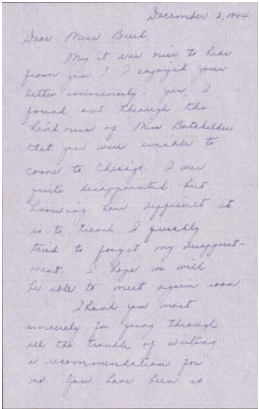 December 3, 1944
Dear Miss Breed,
My it was nice to hear
from you! I enjoyed your
letter immensely. Yes, I
found out through the
kindness of Miss Batchelder
that you were unable to
come to Chicago. I was
quite disappointed but
knowing how difficult it
is to travel, I quickly
tried to forget my disappoint-
ment. I hope we will
be able to meet again soon
Thank you most
sincerely for going through
all the trouble of writing
a recommendation for
me. You have been so